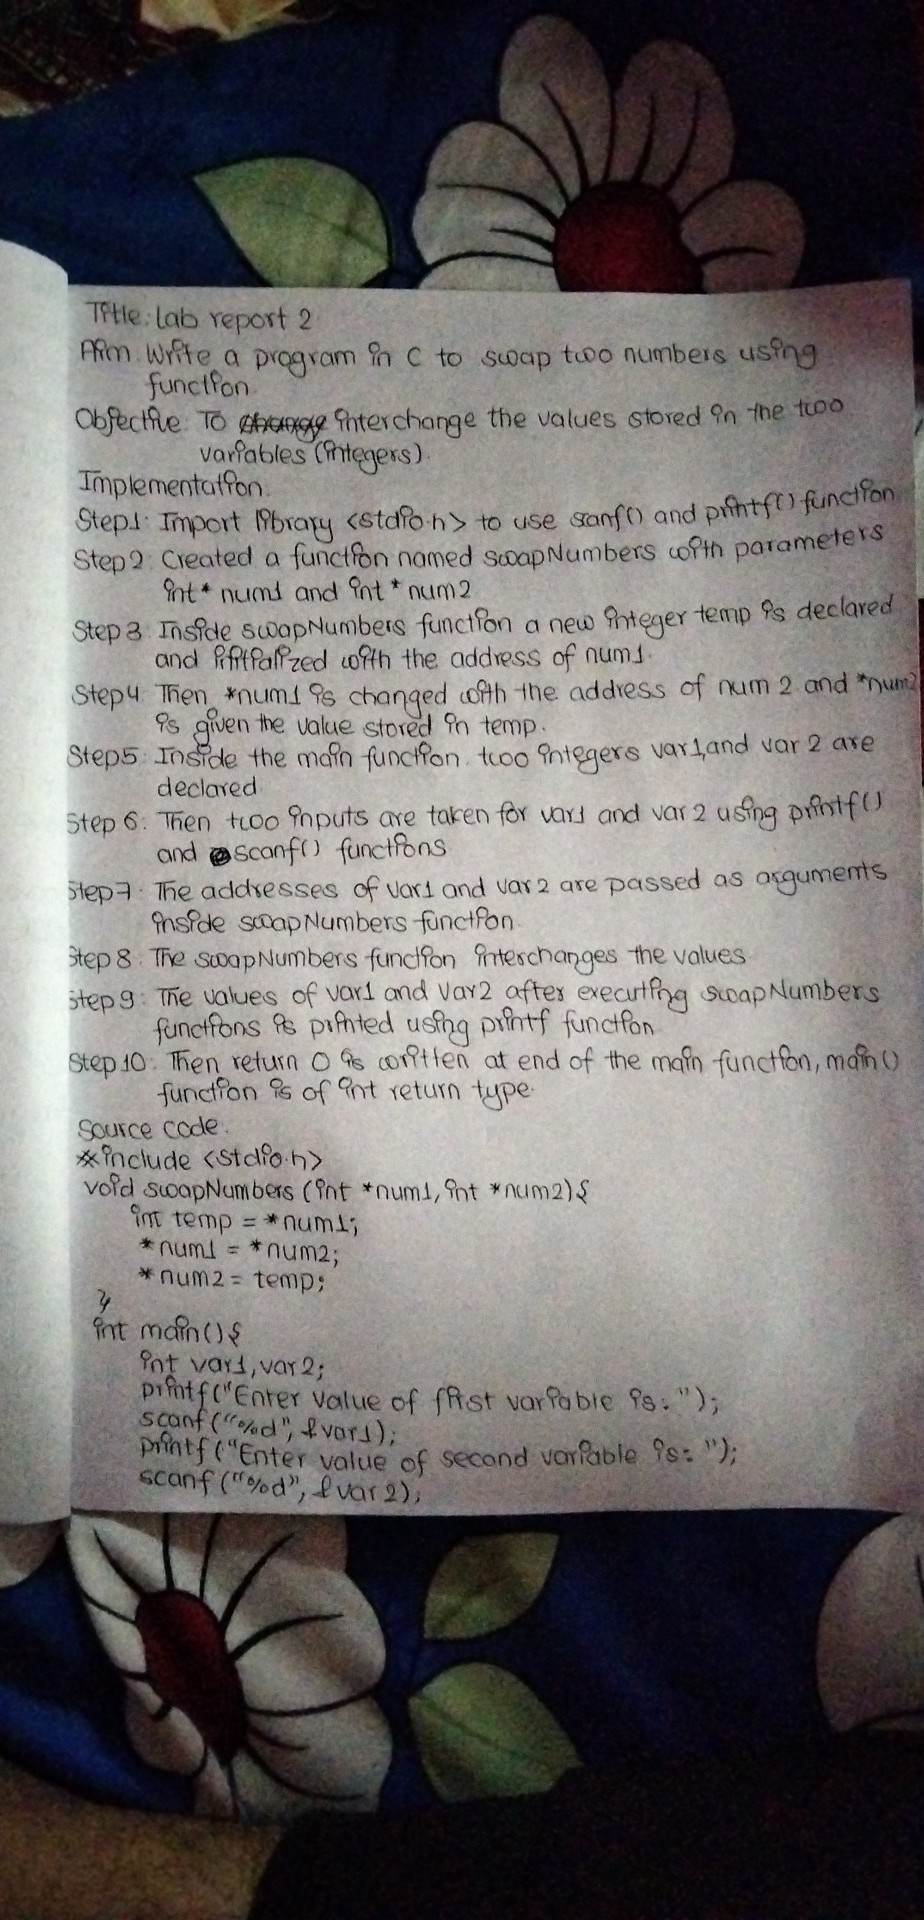 Title: Lab report 2
Aim: Write a program in C to swap two numbers using
function.
Objective: To change interchange the values stored in the two
variables (integers).
Implementation:
Step1: Import library <stdio.h> to use scanf() and printf() function
Step2: Created a function named swapNumbers with parameters
int* num1 and int* num2
Step 3: Inside swapNumbers function a new integer temp is declared
and initialized with the address of num1.
Step4: Then *num1 is changed with the address of num 2 and *num2
is given the value stored in temp.
Step5: Inside the main function, two integers var1, and var 2 are
declared
Step 6: Then two inputs are taken for var1 and var 2 using printf()
and scanf() functions
Step7: The addresses of var1 and var2 are passed as arguments
inside swapNumbers function.
Step 8: The swapNumbers function interchanges the values
Step 9: The values of var1 and var2 after executing swapNumbers
functions is printed using printf function
Step 10: Then return 0 is written at end of the main function, main()
function is of int return type.
Source code:
#include <stdio.h>
void swapNumbers (int *num1, int *num2){
int temp = *num1;
*num1 = *num2;
*num2 = temp;
}
int main(){
int var1, var2;
printf("Enter value of first variable is: ");
scanf("%d", &var1);
printf("Enter value of second variable is: ");
scanf("%d", &var 2);